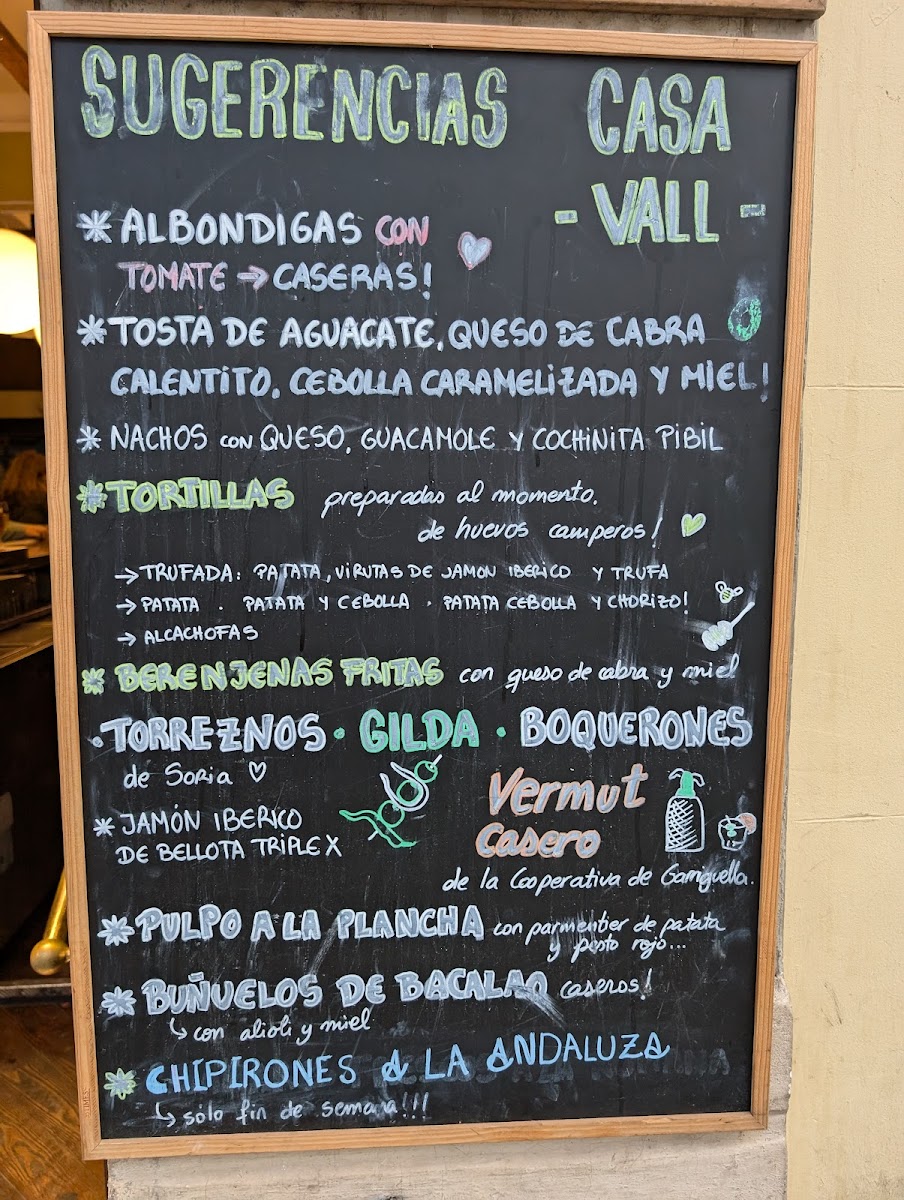 SUGERENCIAS CASA
- VALL -
* ALBONDIGAS CON
TOMATE → CASERAS!
* TOSTA DE AGUACATE, QUESO DE CABRA
CALENTITO, CEBOLLA CARAMELIZADA Y MIEL!
* NACHOS CON QUESO, GUACAMOLE Y COCHINITA PIBIL
* TORTILLAS preparadas al momento,
de huevos camperos!
→ TRUFADA: PATATA, VIRUTAS DE JAMON IBERICO Y TRUFA
→ PATATA · PATATA Y CEBOLLA · PATATA CEBOLLA Y CHORIZO!
→ ALCACHOFAS
* BERENJENAS FRITAS con queso de cabra y miel
· TORREZNOS · GILDA · BOQUERONES
de Soria ♡
* JAMÓN IBERICO
DE BELLOTA TRIPLE X
Vermut
Casero
de la Cooperativa de
* PULPO A LA PLANCHA con parmentier de patata
y pesto rojo...
* BUÑUELOS DE BACALAO caseros!
↳ con alioli y miel
* CHIPIRONES A LA ANDALUZA
↳ sólo fin de semana!!!